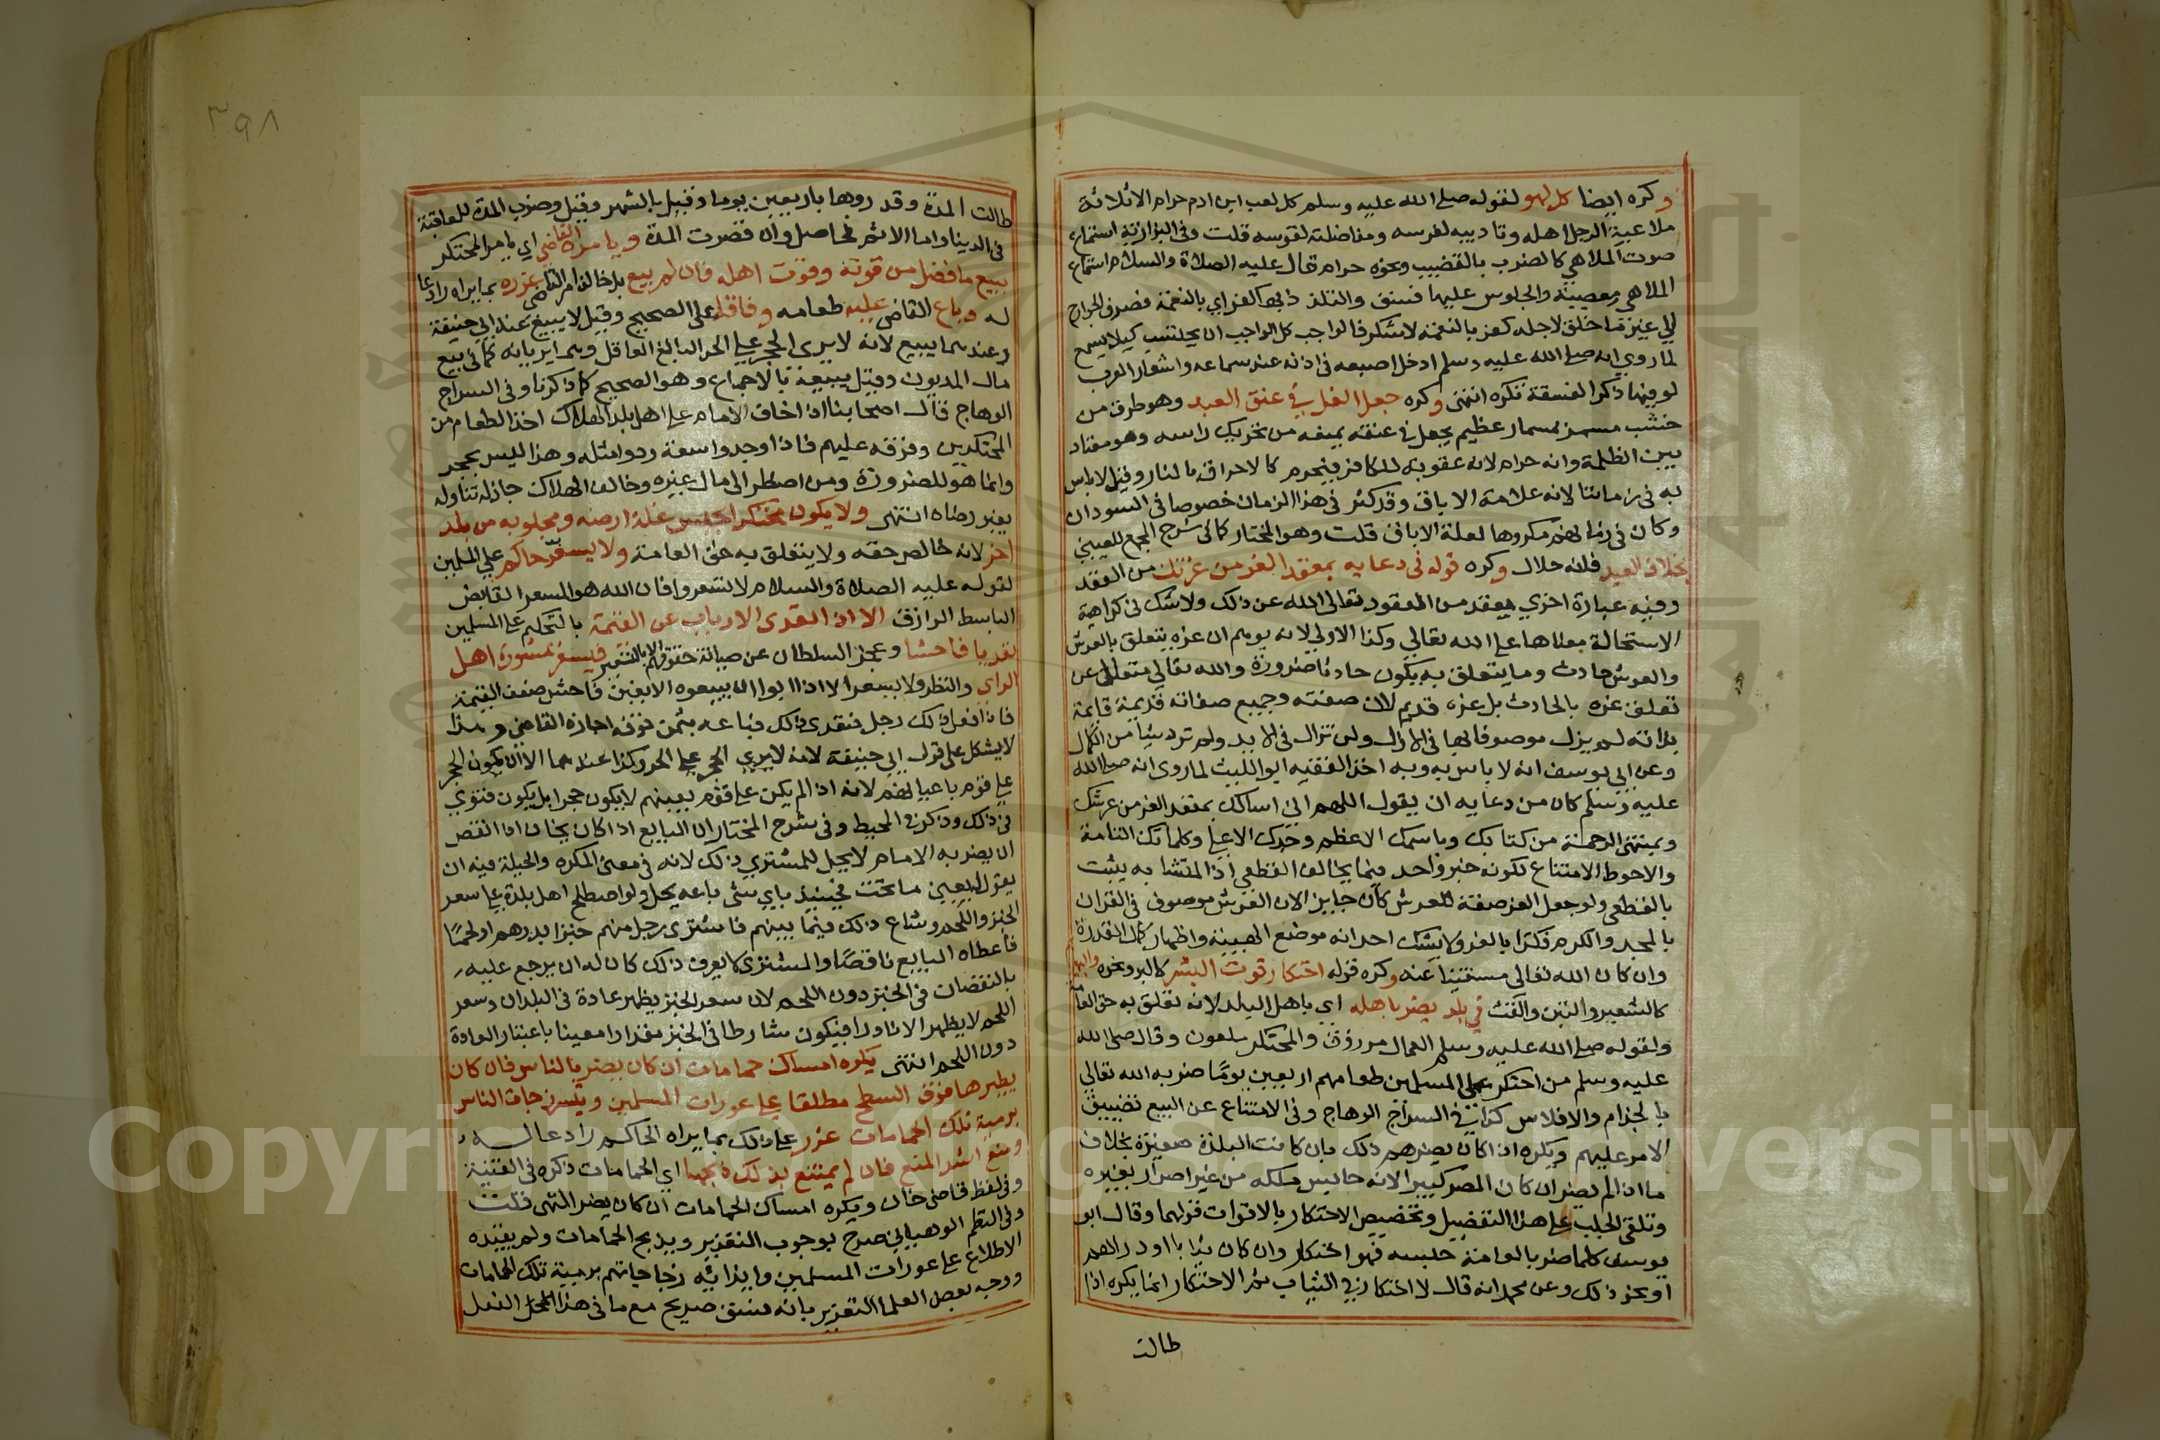 وكره ايضا كل لهو لقوله صلى الله عليه وسلم كل لعب ابن ادم حرام الا ثلاثة
ملاعبة الرجل اهله وتاديبه لفرسه ومناضلته لقوسه قلت وفي البزازية استماع
صوت الملاهي كالضرب بالقضيب ونحوه حرام قال عليه الصلاة والسلام استماع
الملاهي معصية والجلوس عليها فسق والتلذذ بها كفر اي بالنعمة فصرف الجوارح
الي غير ما خلق لاجله كفر بالنعمة لا شكر فالواجب كل الواجب ان يجتنب كيلا يسمع
لما روي انه صلى الله عليه وسلم ادخل اصبعه في اذنه عند سماعه واشعار العرب
لو فيها ذكر الفسقة تكره انتهى وكره جعل الغل في عنق العبد وهو طوق من
خشب مسمر بمسمار عظيم يجعل في عنقه يمنعه من تحريك راسه وهو معتاد
بين الظلمة وانه حرام لانه عقوبة للكافر فيحرم كالاحراق بالنار وقيل لا باس
به في زماننا لانه علامة الاباق وقد كثر في هذا الزمان خصوصا في السودان
وكان في زمانهم مكروها لقلة الاباق قلت وهو المختار كما في شرح المجمع للعيني
بخلاف القيد فانه حلال وكره قوله في دعايه بمعقد العز من عرشك من العقد
وفيه عبارة اخري بمقعد من القعود تعالى الله عن ذلك ولا شك في كراهة
الاستحالة معناها على الله تعالي وكذا الاولي لانه يوهم ان عزه يتعلق بالعرش
والعرش حادث وما يتعلق به يكون حادثا ضرورة والله تعالي متعالي عن
تعلق عزه بالحادث بل عزه قديم لان صفته وجميع صفاته قديمة قايمة
بذاته لم يزل موصوفا بها في الازل ولن تزال في الابد ولم ترد شيا من الكمال
وعن ابي يوسف انه لا باس به وبه اخذ الفقيه ابو الليث لما روى انه صلى الله
عليه وسلم كان من دعايه ان يقول اللهم اني اسالك بمعقد العز من عرشك
وبمنتهى الرحمة من كتابك وباسمك الاعظم وجدك الاعلي وكلماتك التامة
والاحوط الامتناع لكونه خبر واحد فيما يخالف القطعي اذ المتشابه يثبت
بالقطعي ولو جعل العز صفة للعرش كان جايز الان العرش موصوف في القران
بالمجد والكرم فكذا بالعز ولا يشك احد انه موضع الهيبة واظهار كمال القدرة
وان كان الله تعالي مستغنيا عنه وكره قوله احتكار قوت البشر كالبر ونحوه والبهايم
كالشعير والتبن والقت في بلد يضر باهله اي باهل البلد لانه تعلق به حق العامة
ولقوله صلى الله عليه وسلم الجالب مرزوق والمحتكر ملعون وقال صلى الله
عليه وسلم من احتكر على المسلمين طعامهم اربعين يوما ضربه الله تعالي
بالجذام والافلاس كذا في السراج الوهاج وفي الامتناع عن البيع تضييق
الامر عليهم ويكره اذا كان يضرهم ذلك بان كانت البلدة صغيرة بخلاف
ما اذا لم يضر ان كان المصر كبيرا لانه حابس ملكه من غير اضرار بغيره
وتلقي الجلب على هذا التفصيل وتخصيص الاحتكار بالاقوات قولهما وقال ابو
يوسف كلما ضر بالعامة حبسه فهو احتكار وان كان ثيابا او دراهم
او نحو ذلك وعن محمد انه قال لا احتكار في الثياب ثم الاحتكار انما يكره اذا
طالت
٣٩٨
طالت المدة وقد روها باربعين يوما وقيل بالشهر وقيل وضرب المدة للعاقبة
في الدنيا واما الاثم فحاصل وان قصرت المدة ويامره القاضي اي يامر المحتكر
ببيع ما فضل من قوته وقوت اهله فان لم يبع بل خالف امر القاضي عزره بما يراه رادعا
له وباع القاضي عليه طعامه وفاقا على الصحيح وقيل لا يبيع عند ابي حنيفة
وعندهما يبيع لانه لا يرى الحجر على الحر البالغ العاقل وهما يريانه كما في بيع
مال المديون وقيل يبيعه بالاجماع وهو الصحيح كما ذكرنا وفي السراج
الوهاج قال اصحابنا اذا خاف الامام على اهل بلد الهلاك اخذ الطعام من
المحتكرين وفرقه عليهم فاذا وجدوا سعة ردوا مثله وهذا ليس بحجر
وانما هو للضرورة ومن اضطر الى مال غيره وخاف الهلاك جاز له تناوله
بغير رضاه انتهى ولا يكون محتكرا بحبس غلة ارضه ومجلوبه من بلد
اخر لانه خالص حقه ولا يتعلق به حق العامة ولا يسعر حاكم علي المسلمين
لقوله عليه الصلاة والسلام لا تسعروا فان الله هو المسعر القابض
الباسط الرازق الا اذا تعدى الارباب عن القيمة بالتحكم على المسلمين
تعديا فاحشا وعجز السلطان عن صيانة حقوقهم الا بالتسعير فيسعر بمشورة اهل
الراي والنظر ولا يسعر الا اذا ابوا ان يبيعوه الا بغبن فاحش ضعف القيمة
فاذا فعل ذلك رجل فتعدى ذلك فباعه بثمن فوقه اجازه القاضي وهذا
لا يشكل على قول ابي حنيفة لانه لا يري الحجر على الحر وكذا عندهما الا ان يكون الحجر
على قوم باعيانهم لانه اذا لم يكن على قوم بعينهم لا يكون حجرا بل يكون فتوي
في ذلك وذكر في المحيط وفي شرح المختار ان البايع اذا كان يخاف اذا نقص
ان يضربه الامام لا يحل للمشتري ذلك لانه في معنى المكره والحيلة فيه ان
يقول له بعني ما تحب فحينئذ باي شي باعه يحل ولو اصطلح اهل بلدة على سعر
الخبز واللحم وشاع ذلك فيما بينهم فاشترى رجل منهم خبزا بدرهم او لحما
فاعطاه البايع ناقصا والمشتري لا يعرف ذلك كان له ان يرجع عليه
بالنقصان في الخبز دون اللحم لان سعر الخبز يظهر عادة في البلدان وسعر
اللحم لا يظهر الا نادرا فيكون شارطا في الخبز مقدارا معينا باعتبار العادة
دون اللحم انتهى يكره امساك حمامات ان كان يضر بالناس فان كان
يطيرها فوق السطح مطلقا على عورات المسلمين ويكسر زجاجات الناس
برمية تلك الحمامات عزر على ذلك بما يراه الحاكم رادعا له
ومنع اشد المنع فان لم يمتنع بذلك ذبحها اي الحمامات ذكره في القنية
وفي لفظ قاضي خان ويكره امساك الحمامات ان كان يضر انتهى قلت
وفي النظم الوهباني صرح بوجوب التعزير ويذبح الحمامات ولم يقيده
الاطلاع على عورات المسلمين وايذائه زجاجاتهم برمية تلك الحمامات
ووجه بعض العلما التعزير بانه فسق صريح مع ما في هذا المحل الفعل
Copyright © King Saud University